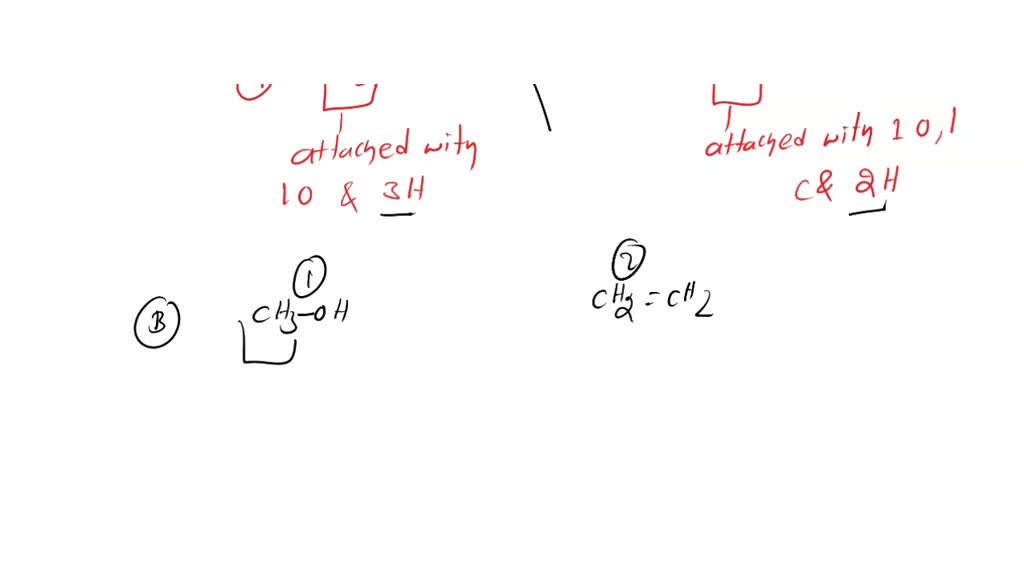 attached with
10 & 3H
attached with 10, 1
C & 2H
B
1
CH3-OH
2
CH2=CH2